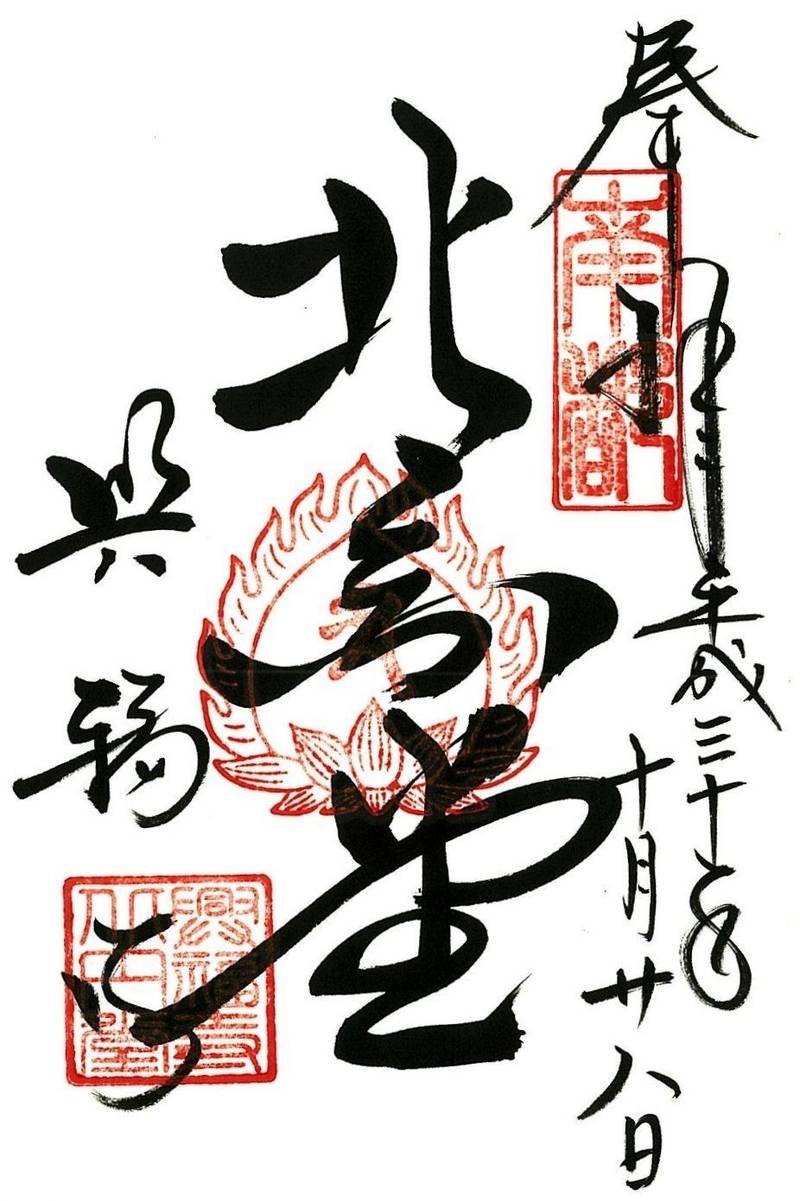 奉拝
南都
平成三十年
十月廿八日
北圓堂
興福寺
興福寺
北円堂